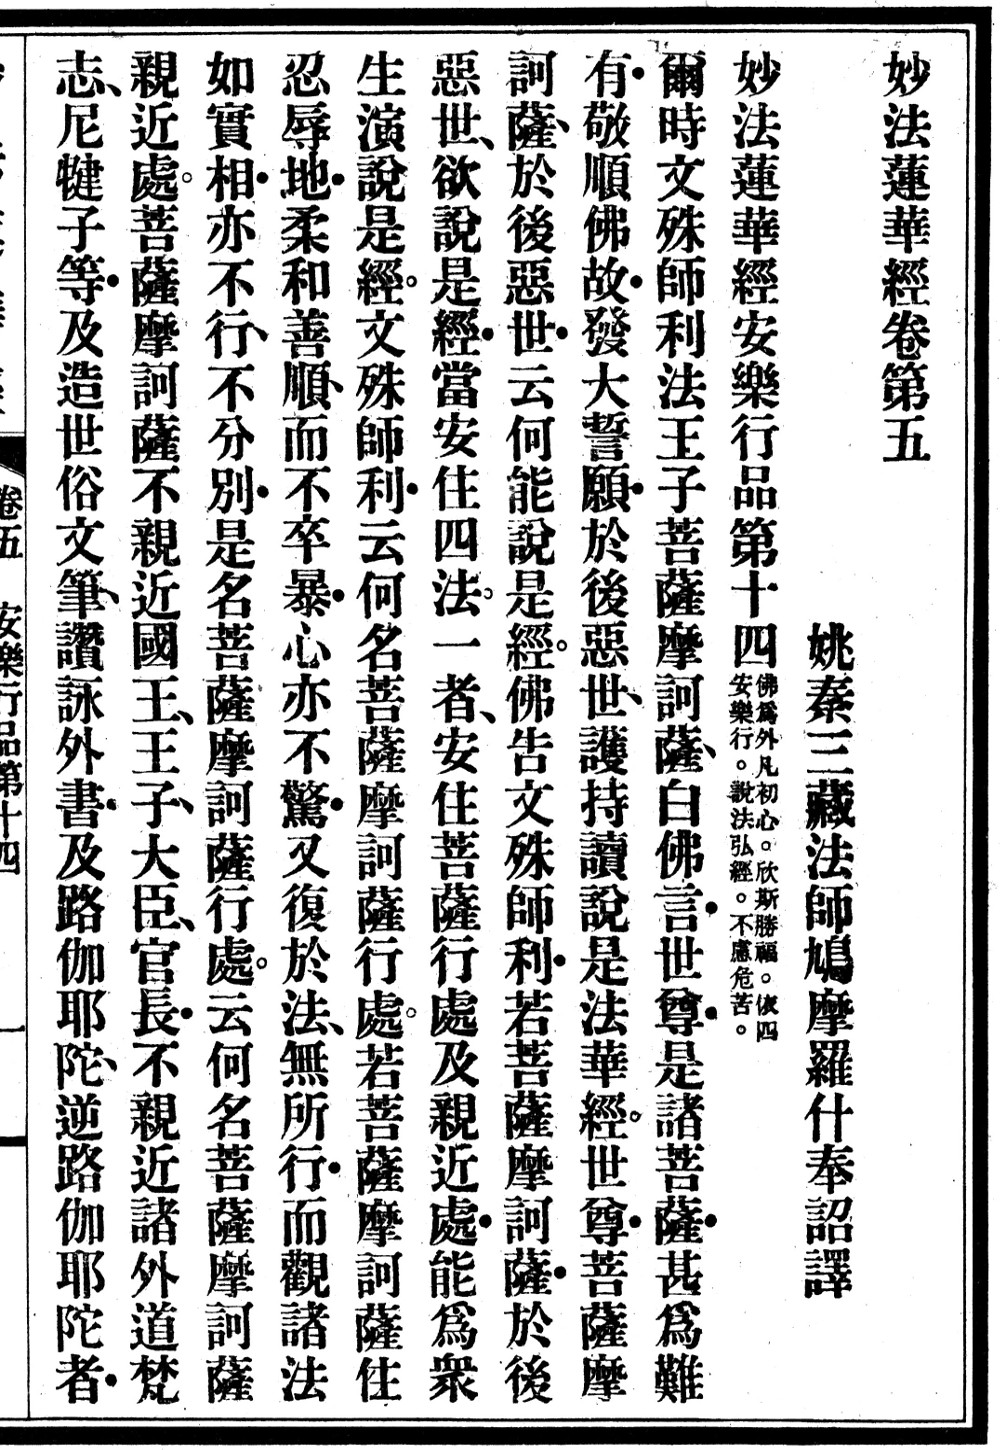 妙法蓮華經卷第五
姚秦三藏法師鳩摩羅什奉詔譯
妙法蓮華經安樂行品第十四
佛爲外凡初心。欣斯勝福。依四
安樂行。說法弘經。不慮危苦。
爾時文殊師利法王子菩薩摩訶薩、白佛言・世尊・是諸菩薩・甚爲難
有・敬順佛故・發大誓願・於後惡世、護持讀說是法華經。世尊・菩薩摩
訶薩、於後惡世・云何能說是經。佛告文殊師利・若菩薩摩訶薩・於後
惡世、欲說是經・當安住四法。一者、安住菩薩行處及親近處・能爲衆
生演說是經。文殊師利・云何名菩薩摩訶薩行處。若菩薩摩訶薩住
忍辱地・柔和善順、而不卒暴・心亦不驚・又復於法、無所行・而觀諸法
如實相・亦不行、不分別・是名菩薩摩訶薩行處。云何名菩薩摩訶薩
親近處。菩薩摩訶薩不親近國王、王子、大臣、官長・不親近諸外道梵
志、尼犍子等・及造世俗文筆、讚詠外書・及路伽耶陀、逆路伽耶陀者・
卷五　安樂行品第十四　一